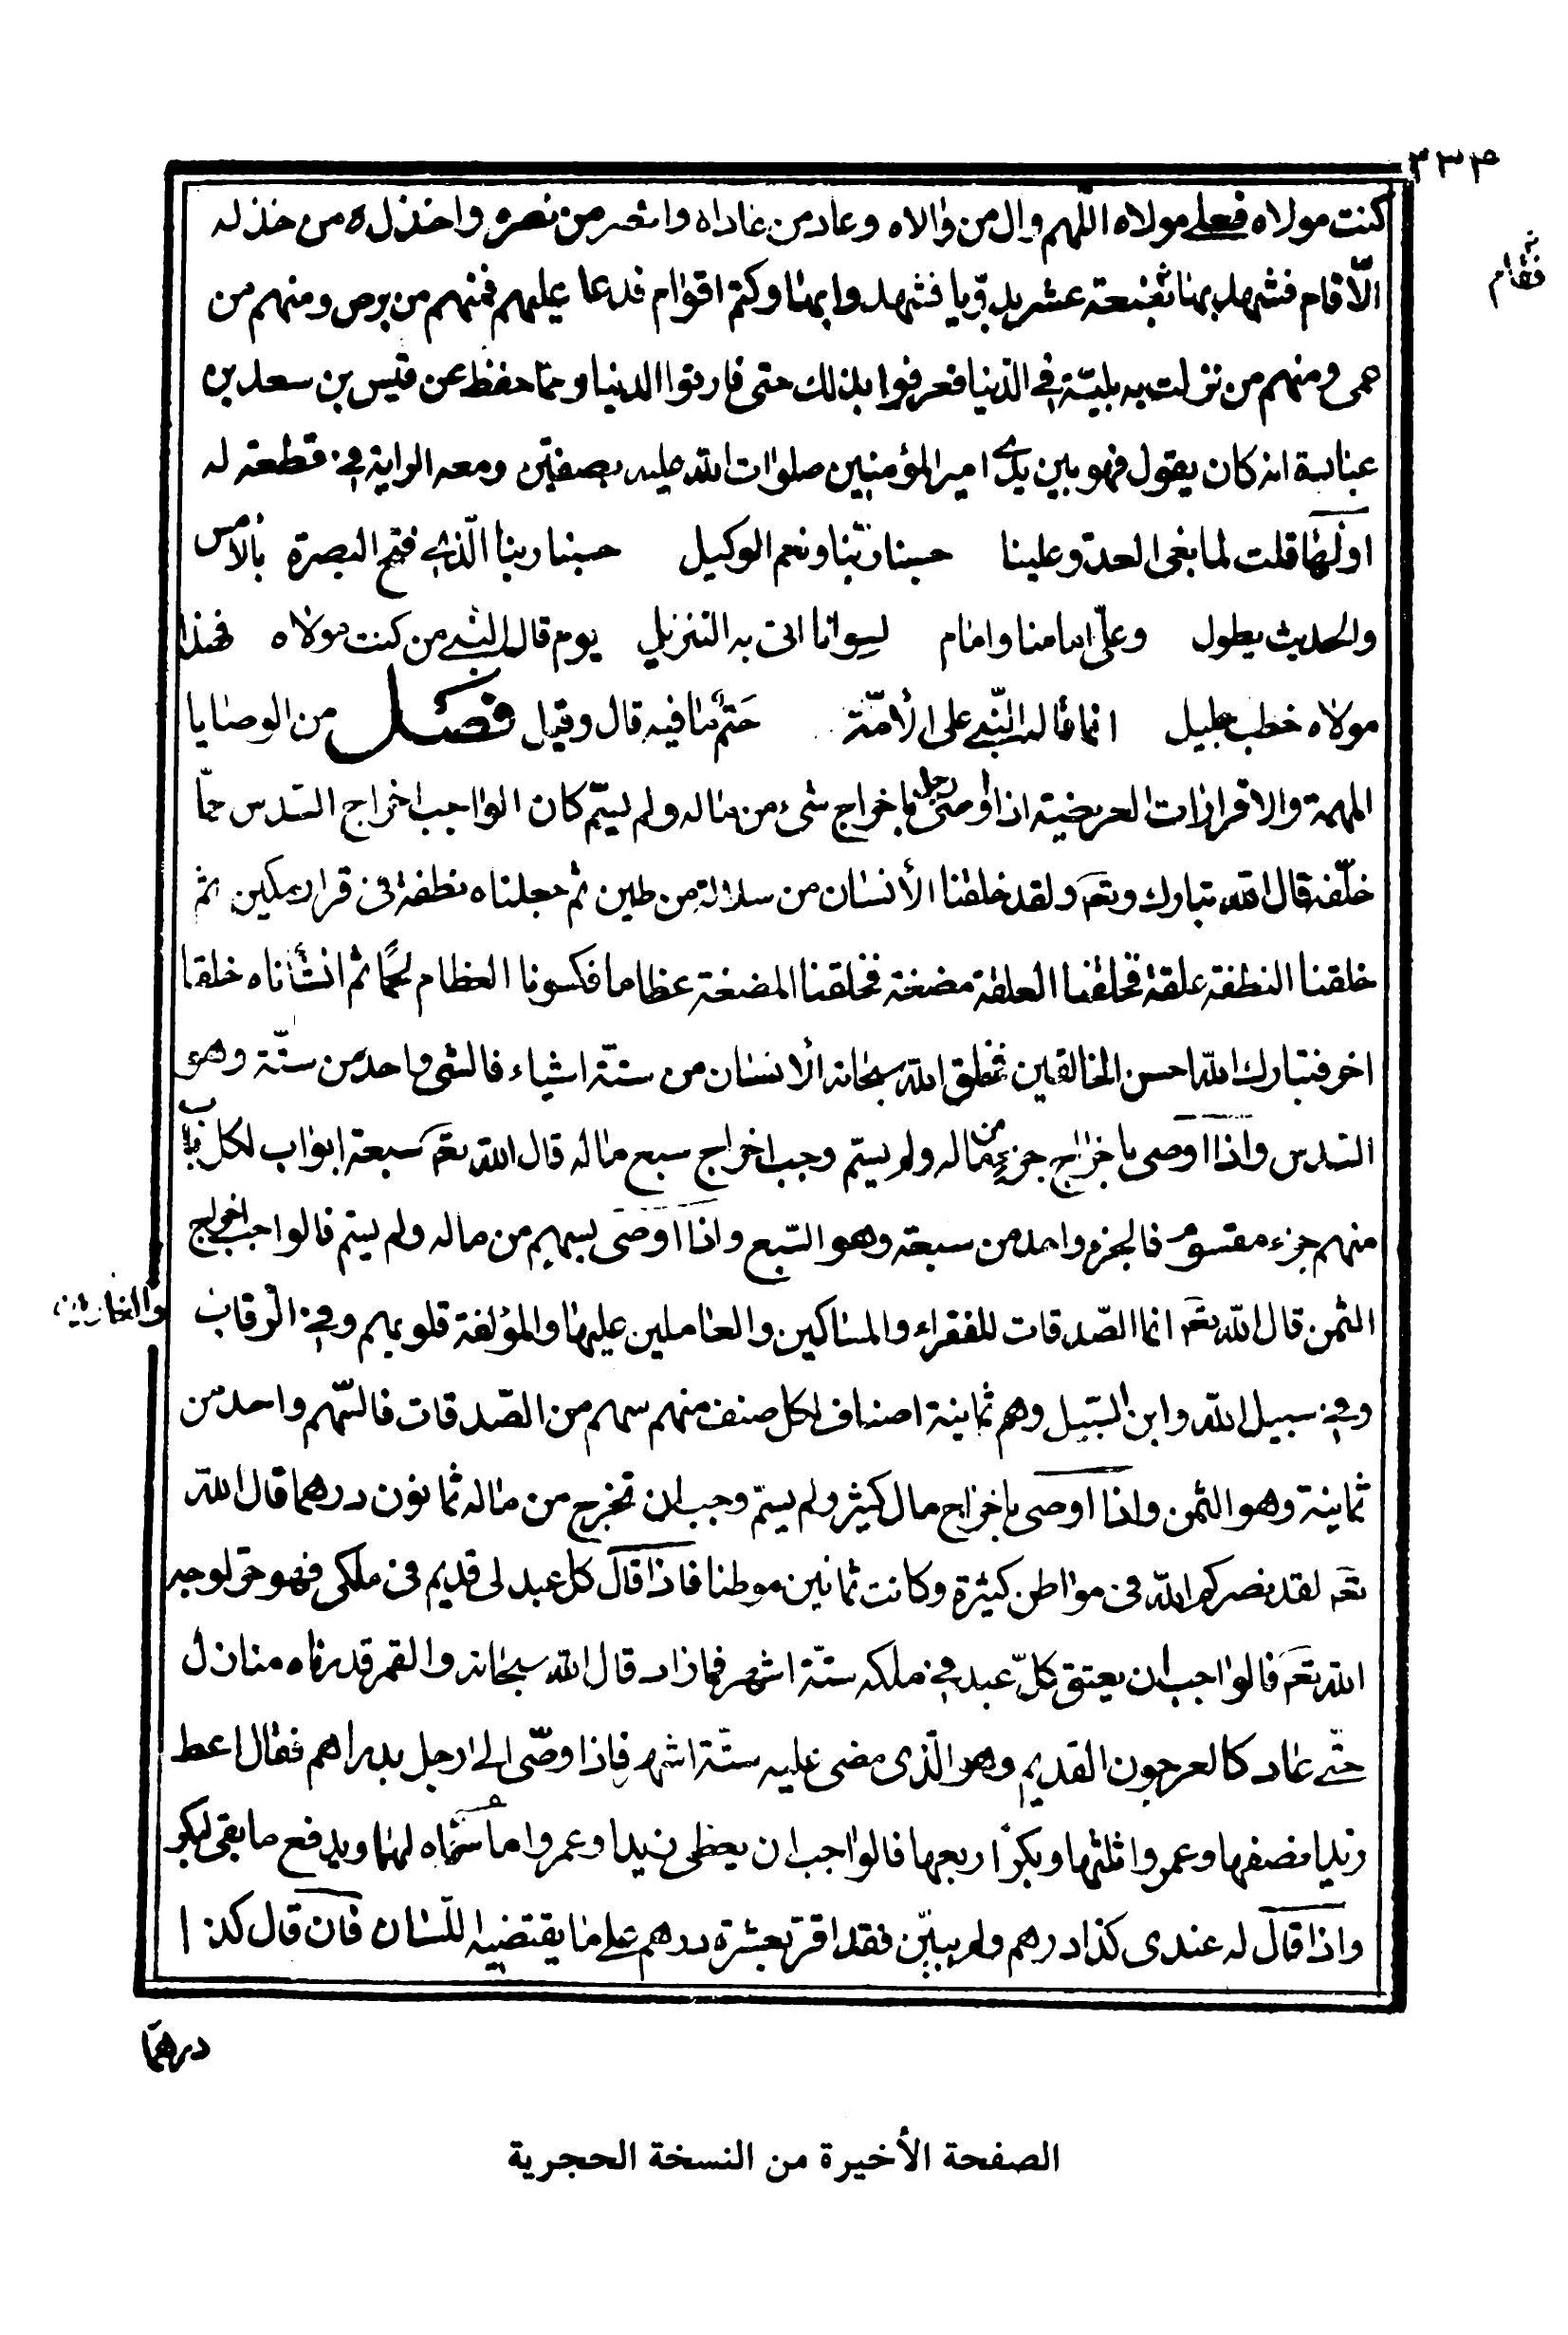 ٣٣٤
كنت مولاه فعلي مولاه اللّهم وال من والاه وعاد من عاداه وانصر من نصره واخذل من خذله
الّا قام فشهد بها بضعة عشر بدريا فشهدوا بها وكتم اقوام فدعا عليهم فمنهم من برص ومنهم من
فقام
عمى ومنهم من نزلت به بليّة في الدنيا فعرفوا بذلك حتى فارقوا الدنيا وممّا حفظ عن قيس بن سعد بن
عبادة انه كان يقول فهو بين يدي امير المؤمنين صلوات الله عليه بصفين ومعه الراية في قطعة له
اولها قلت لما بغى العدو علينا حسبنا ربنا ونعم الوكيل حسبنا ربنا الّذي فتح البصرة بالامس
والحديث يطول وعليّ امامنا وامام لسوانا اتى به التنزيل يوم قال النبي من كنت مولاه فهذا
مولاه خطب جليل انما قاله النّبي على الأمّة حَتمٌ ما فيه قال وقيل فصل من الوصايا
المبهمة والاقرارات العريضية اذا اوصى رجل باخراج شيء من ماله ولم يسمّ كان الواجب اخراج السّدس ممّا
خلّفه قال الله تبارك وتعٰ ولقد خلقنا الأنسان من سلالة من طين ثم جعلناه نطفة في قرار مكين ثم
خلقنا النطفة علقة فخلقنا العلقة مضغة فخلقنا المضغة عظاما فكسونا العظام لحمًا ثم انشأناه خلقا
اخر فتبارك الله احسن الخالقين فخلق الله سبحانه الأنسان من ستّة اشياء فالشئ واحد من ستّة وهو
السّدس واذا اوصى باخراج جزء من ماله ولم يسم وجب اخراج سبع ماله قال الله تعٰ سبعة ابواب لكل باب
منهم جزء مقسوم فالجزء واحد من سبعة وهو السّبع واذا اوصى بسهم من ماله ولم يسم فالواجب اخراج
الثمن قال الله تعٰ انما الصّدقات للفقراء والمساكين والعاملين عليها والمؤلفة قلوبهم وفي الرقاب
والغارمين
وفي سبيل الله وابن السّبيل وهم ثمانية اصناف لكل صنف منهم سهم من الصّدقات فالسّهم واحد من
ثمانية وهو الثمن واذا اوصى باخراج مال كثير ولم يسمّ وجب ان تخرج من ماله ثمانون درهما قال الله
تعٰ لقد نصركم الله في مواطن كثيرة وكانت ثمانين موطنا فاذا قال كل عبد لى قديم في ملكى فهو حر لوجه
الله تعٰ فالواجب ان يعتق كلّ عبد في ملكه ستّة اشهر فما زاد قال الله سبحانه والقمر قدرناه منازل
حتّى عاد كالعرجون القديم وهو الّذى مضى عليه ستّة اشهر فاذا وصّى الى رجل بدراهم فقال اعط
زيدا نصفها وعمروا ثلثها وبكرًا ربعها فالواجب ان يعطى زيدا وعمروا ما سمّاه لهما ويدفع ما بقى لبكر
واذا قال له عندى كذا درهم ولم يبيّن فقد اقر بعشرة درهم على ما يقتضيه اللّسان فان قال كذا
درهمًا
الصفحة الأخيرة من النسخة الحجرية